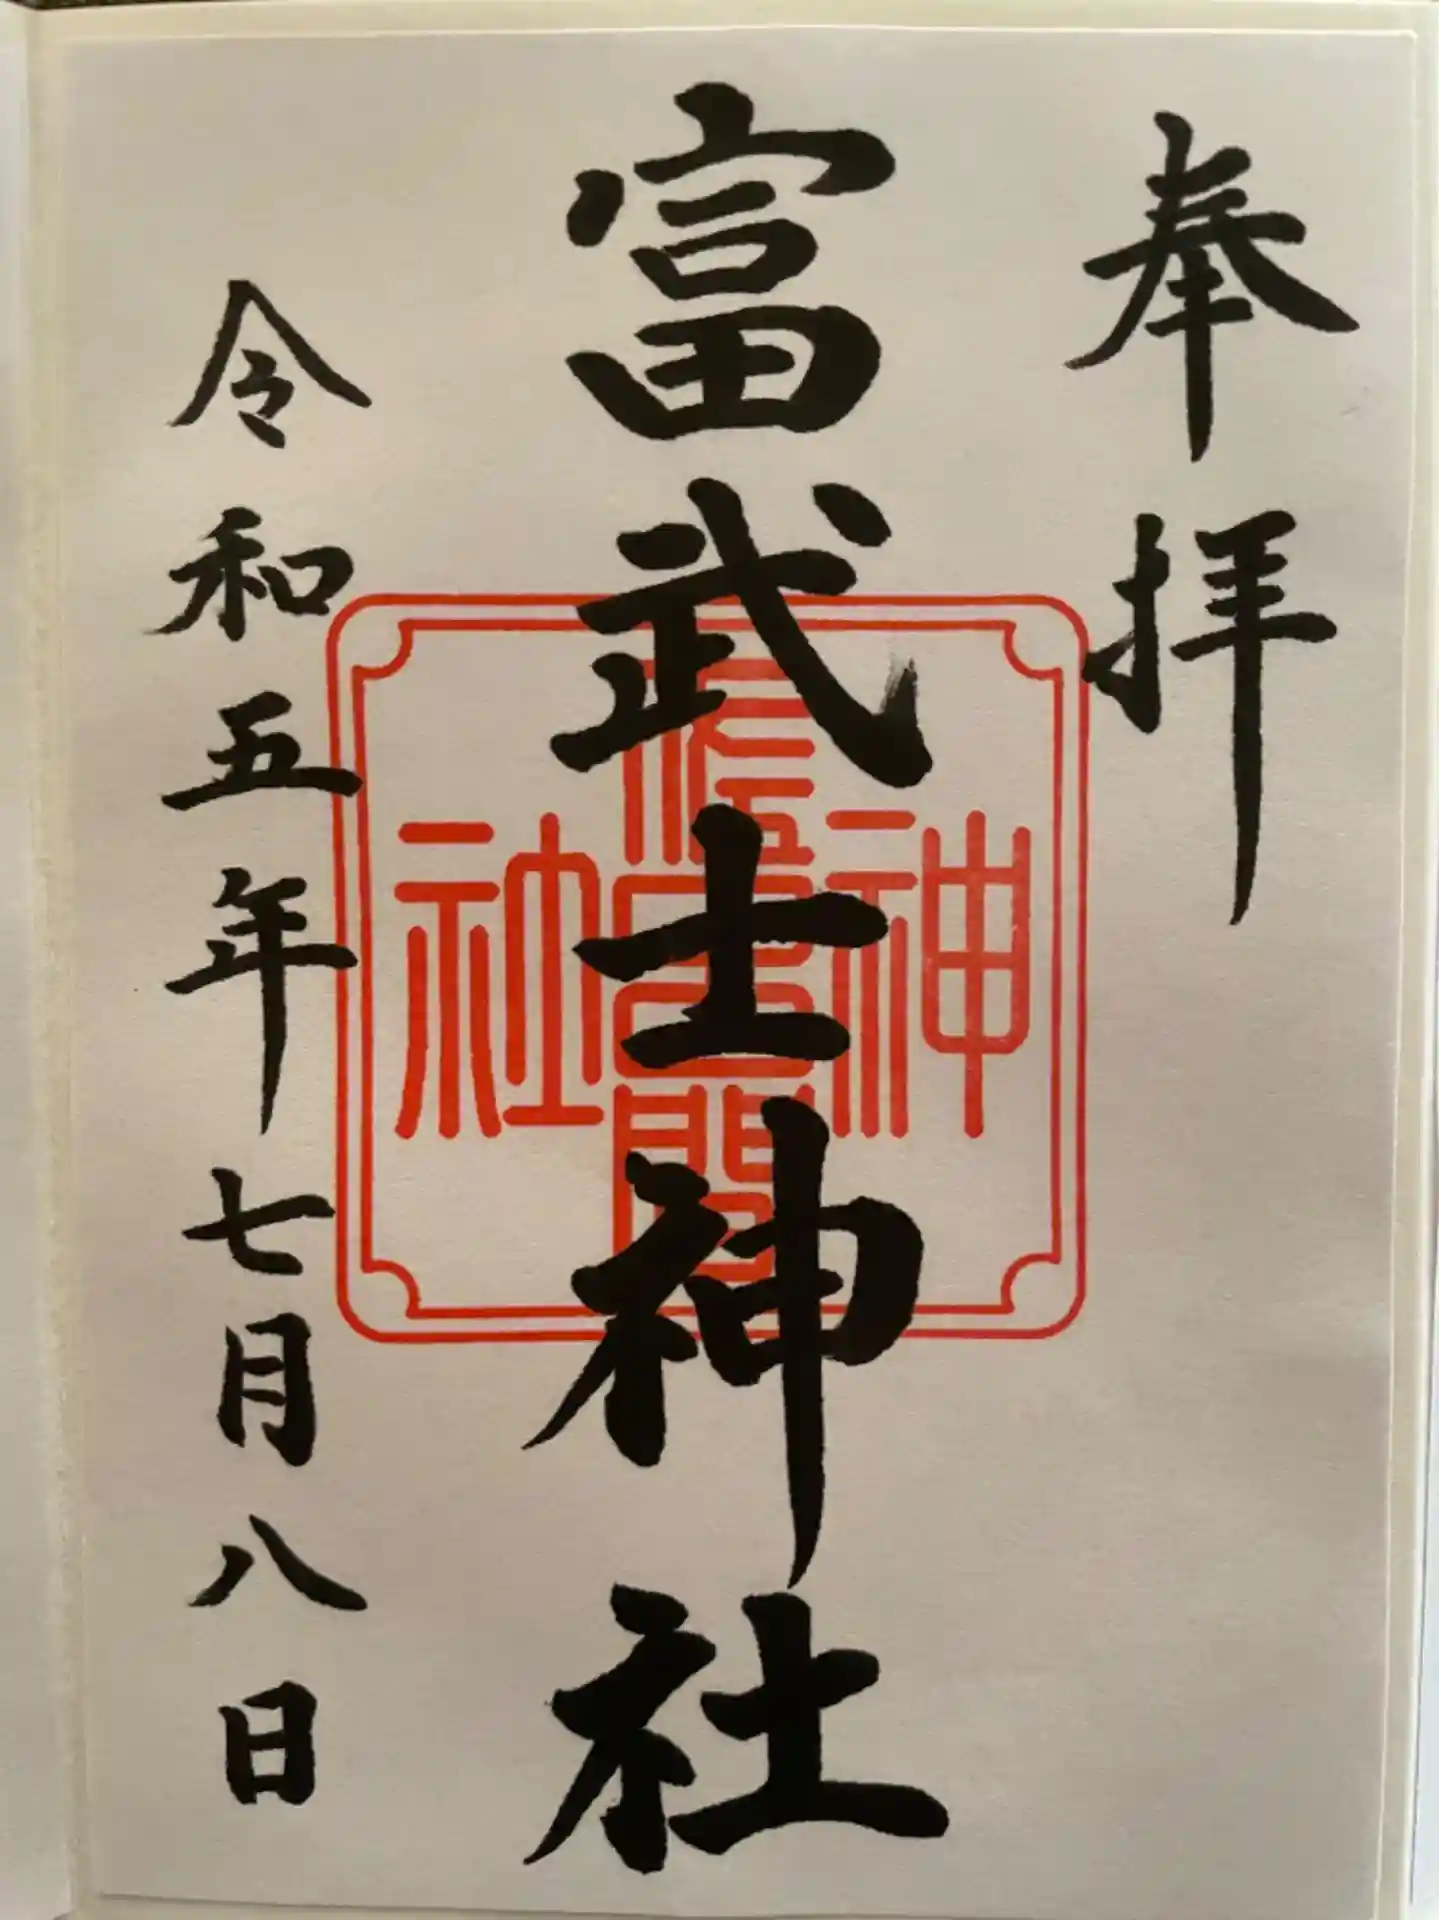 奉拝
富武士神社
令和五年七月八日
神社